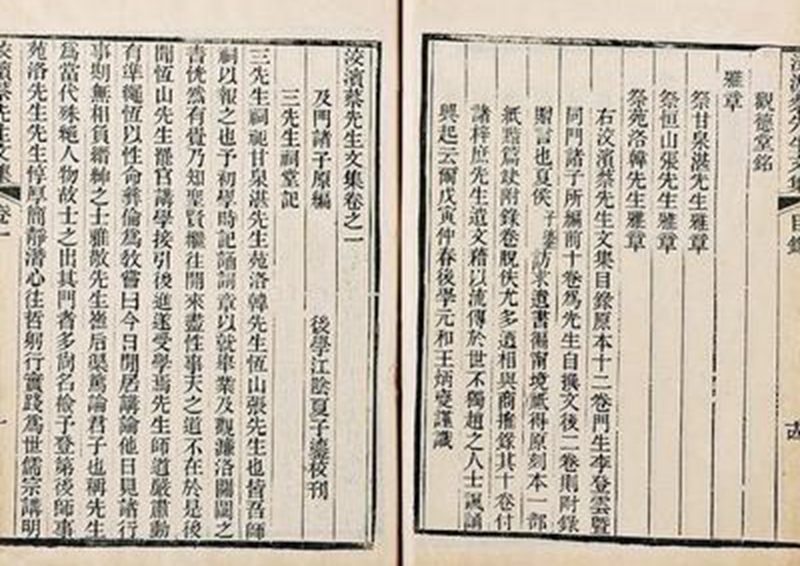 洨濱蔡先生文集 目錄
觀德堂銘
雅章
祭甘泉湛先生雅章
祭恒山張先生雅章
祭苑洛韓先生雅章
右洨濱蔡先生文集目錄原本十二卷門生李登雲暨
同門諸子所編前十卷爲先生自撰文後二卷則附錄
贈言也夏侯子鎏訪求遺書徧甯境祗得原刻本一部
紙黯篇缺附錄卷脫佚尤多遒相與商榷錄其十卷付
諸梓庶先生遺文藉以流傳於世不獨趙之人士諷誦
興起云爾戊寅仲春後學元和王炳燮謹識
洨濱蔡先生文集卷之一
及門諸子原編 後學江陰夏子鎏校刊
三先生祠堂記
三先生祠祀甘泉湛先生苑洛韓先生恆山張先生也皆吾師
祠以報之也予初學時記誦詞章以就舉業及觀濂洛關閩之
書恍然有覺乃知聖賢繼往開來盡性事天之道不在於是後
聞恆山先生罷官講學接引後進遂受學焉先生師道嚴肅動
有準繩恆以性命彝倫爲教嘗曰今日閒居講論他日見諸行
事期無相負縉紳之士雅敬先生崖后渠篤論君子也稱先生
爲當代殊絕人物故士之出其門者多尚名檢予登第後師事
苑洛先生先生惇厚簡靜潛心往哲躬行實踐爲世儒宗講明
洨濱蔡先生文集 卷一